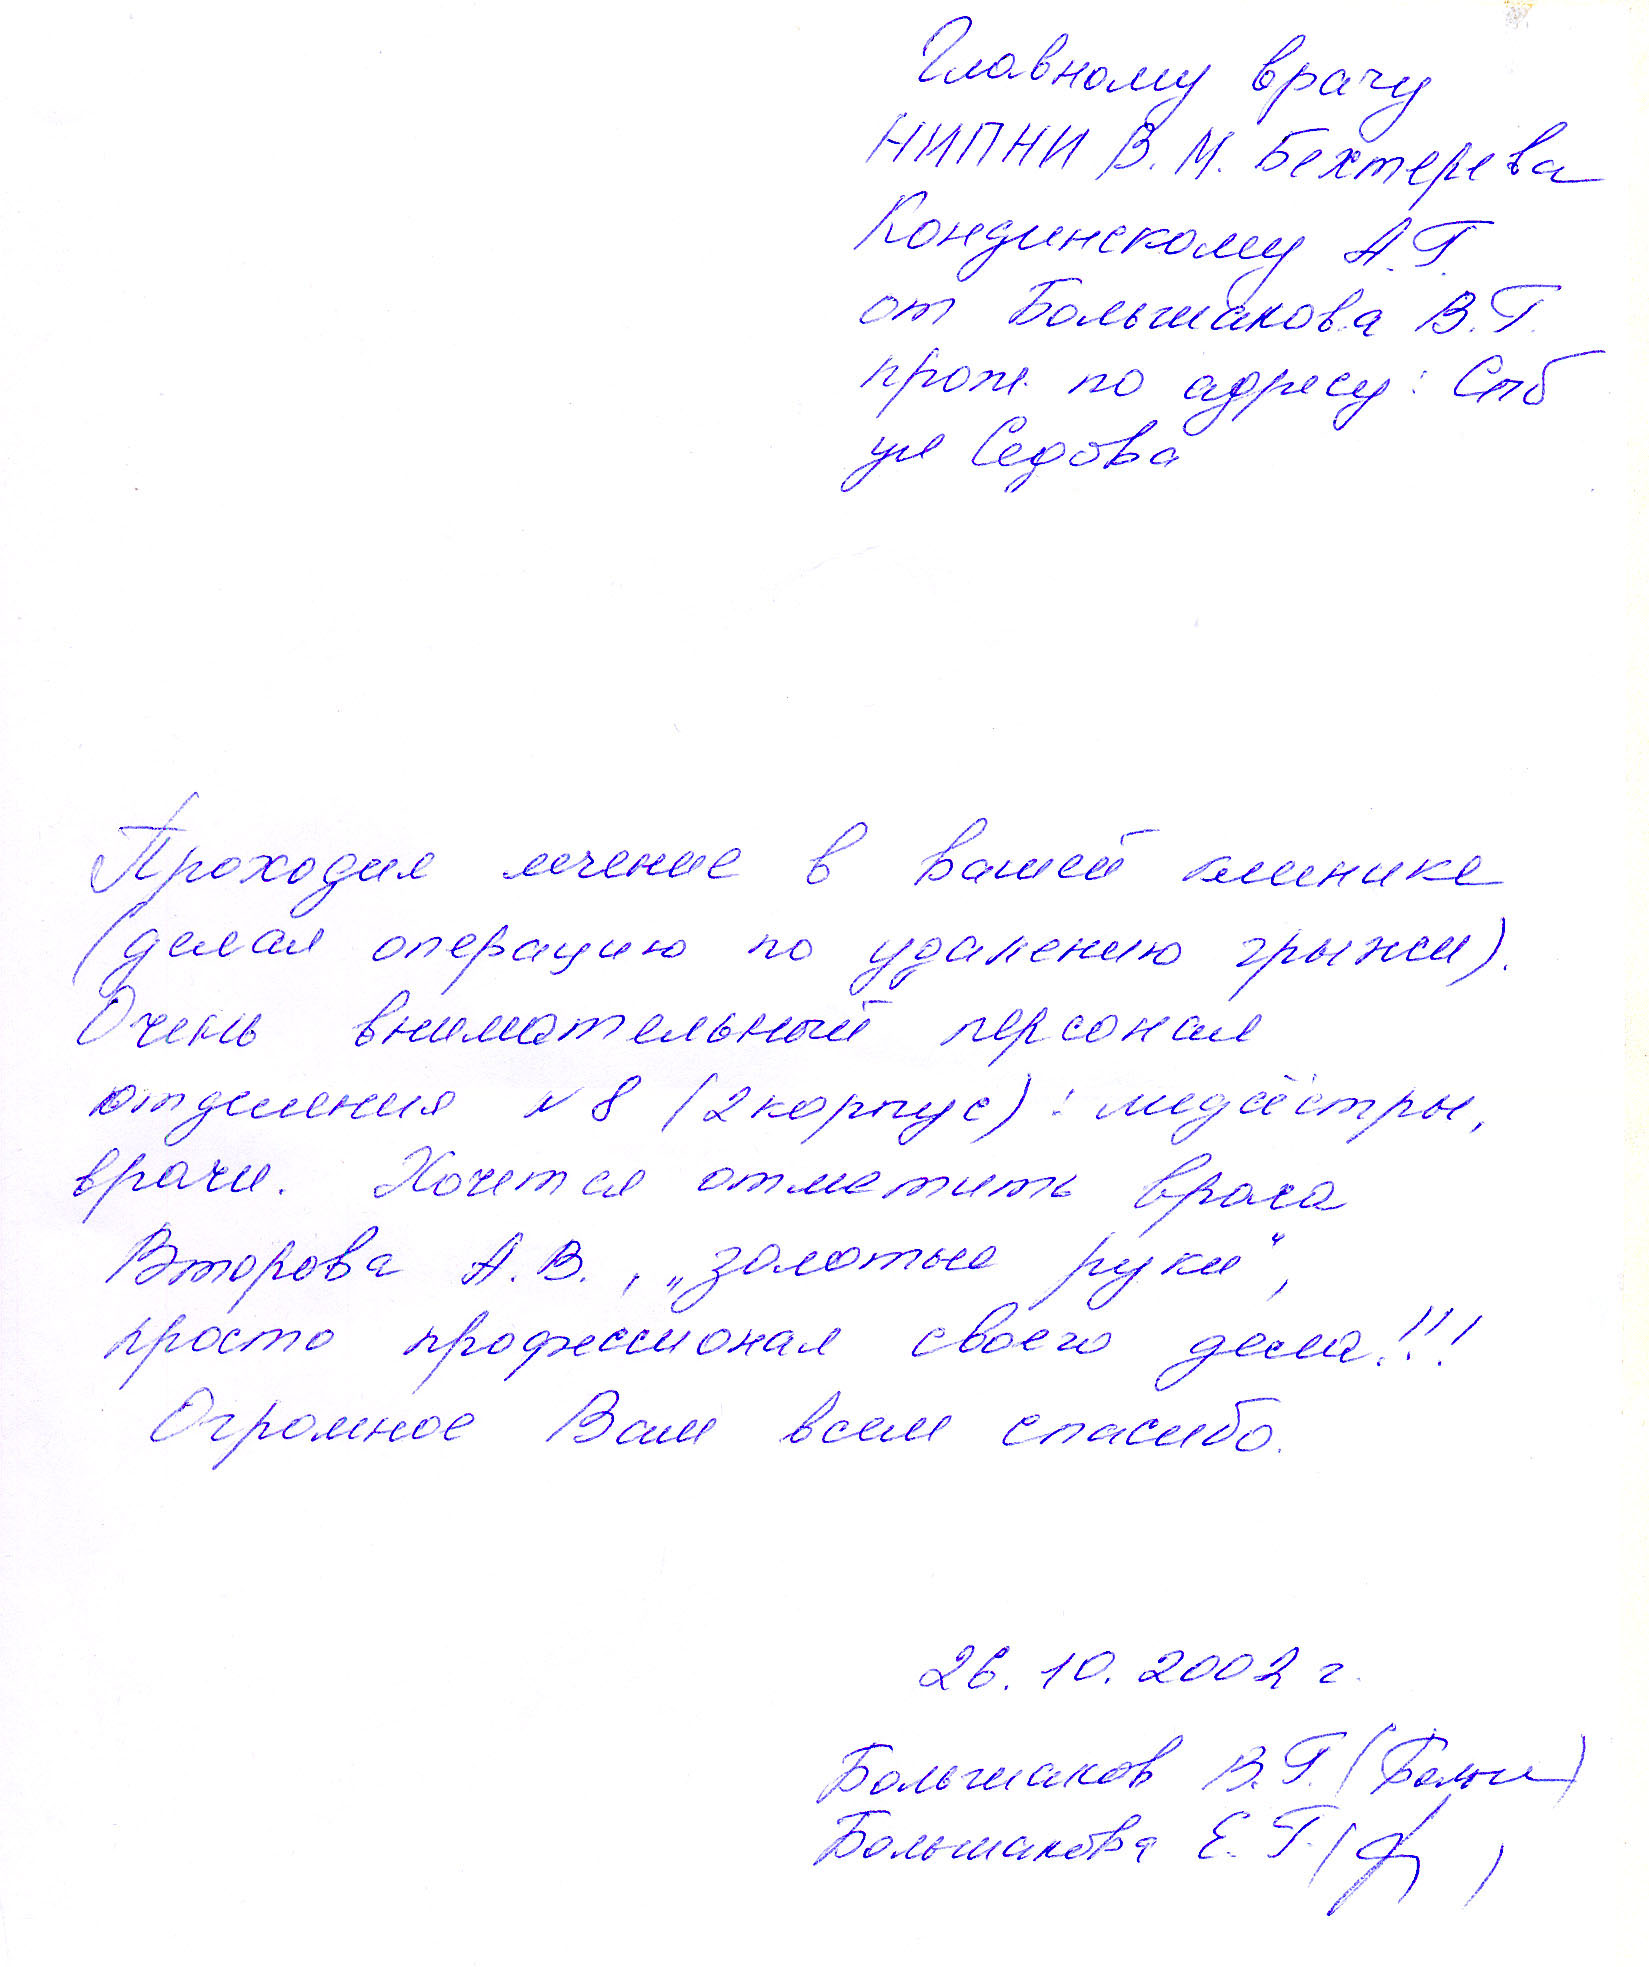 Главному врачу
НИПНИ В.М. Бехтерева
Кондинскому А.Г.
от Большакова В.Г.
прож. по адресу: Спб
ул Седова
Проходил лечение в вашей клинике
(делал операцию по удалению грыжи).
Очень внимательный персонал
отделения № 8 (2 корпус): медсёстры,
врачи. Хочется отметить врача
Второва А.В., „золотые руки“,
просто профессионал своего дела!!!
Огромное Вам всем спасибо.
26.10.2002 г.
Большаков В.Г. (Больш)
Большакова Е.Г. ( )